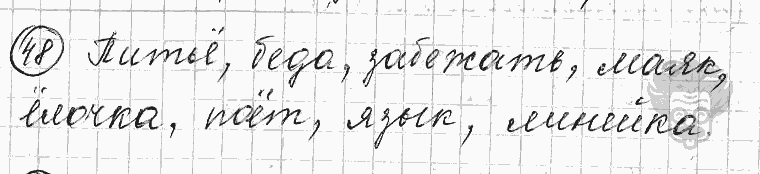 48 Питьё, беда, забежать, маяк,
ёлочка, поёт, язык, линейка.